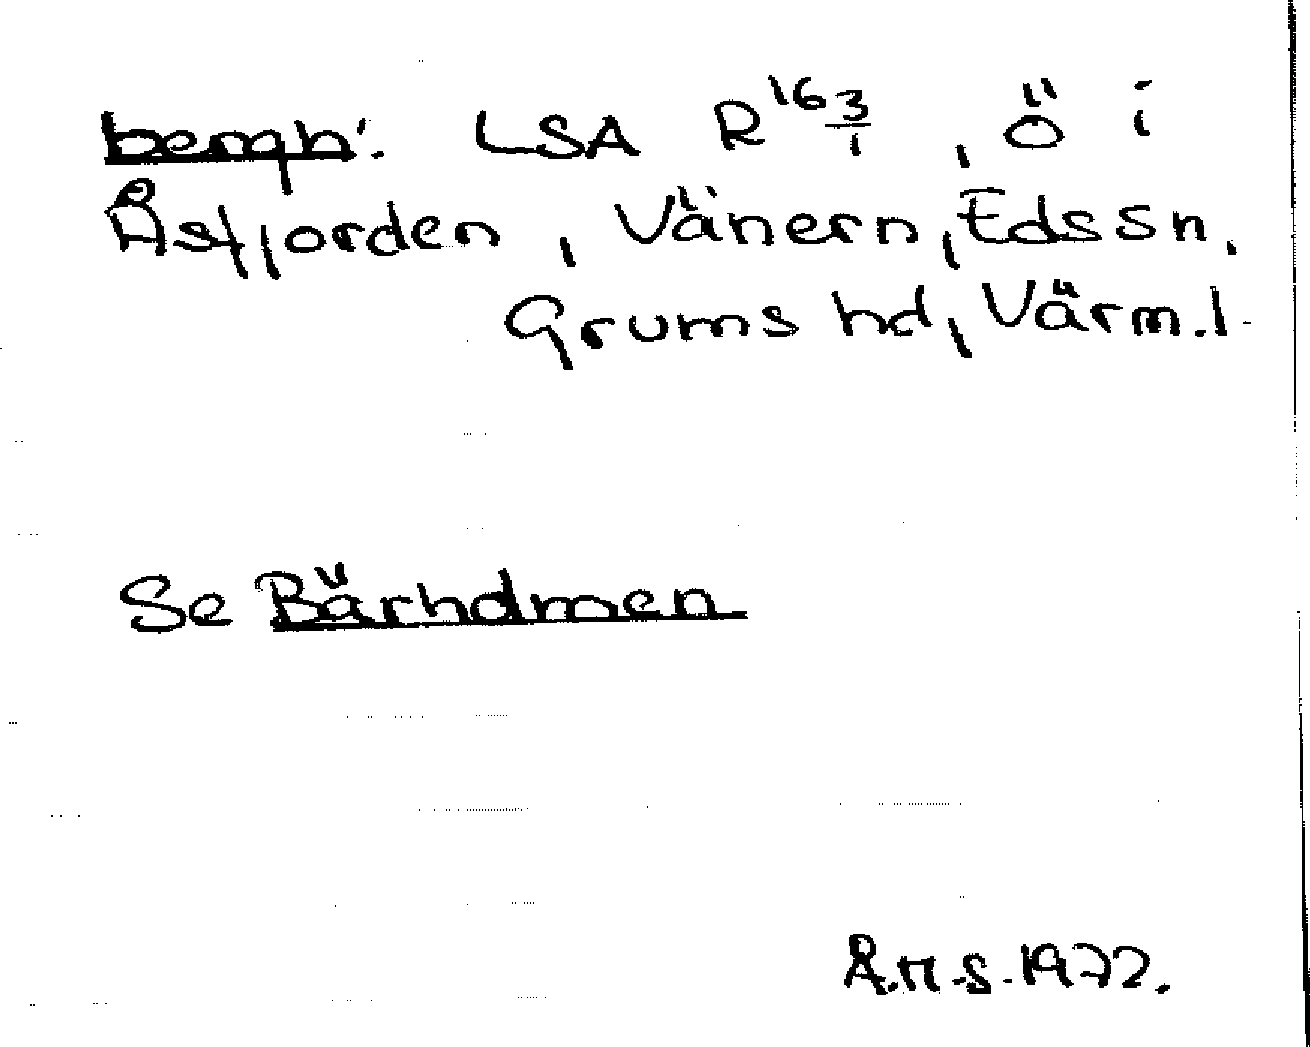 bergh: LSA R16 3/1, ö i
Åsfjorden, Vänern, Eds sn,
Grums hd, Värml.
Se Bärholmen
Å.H.S. 1972.